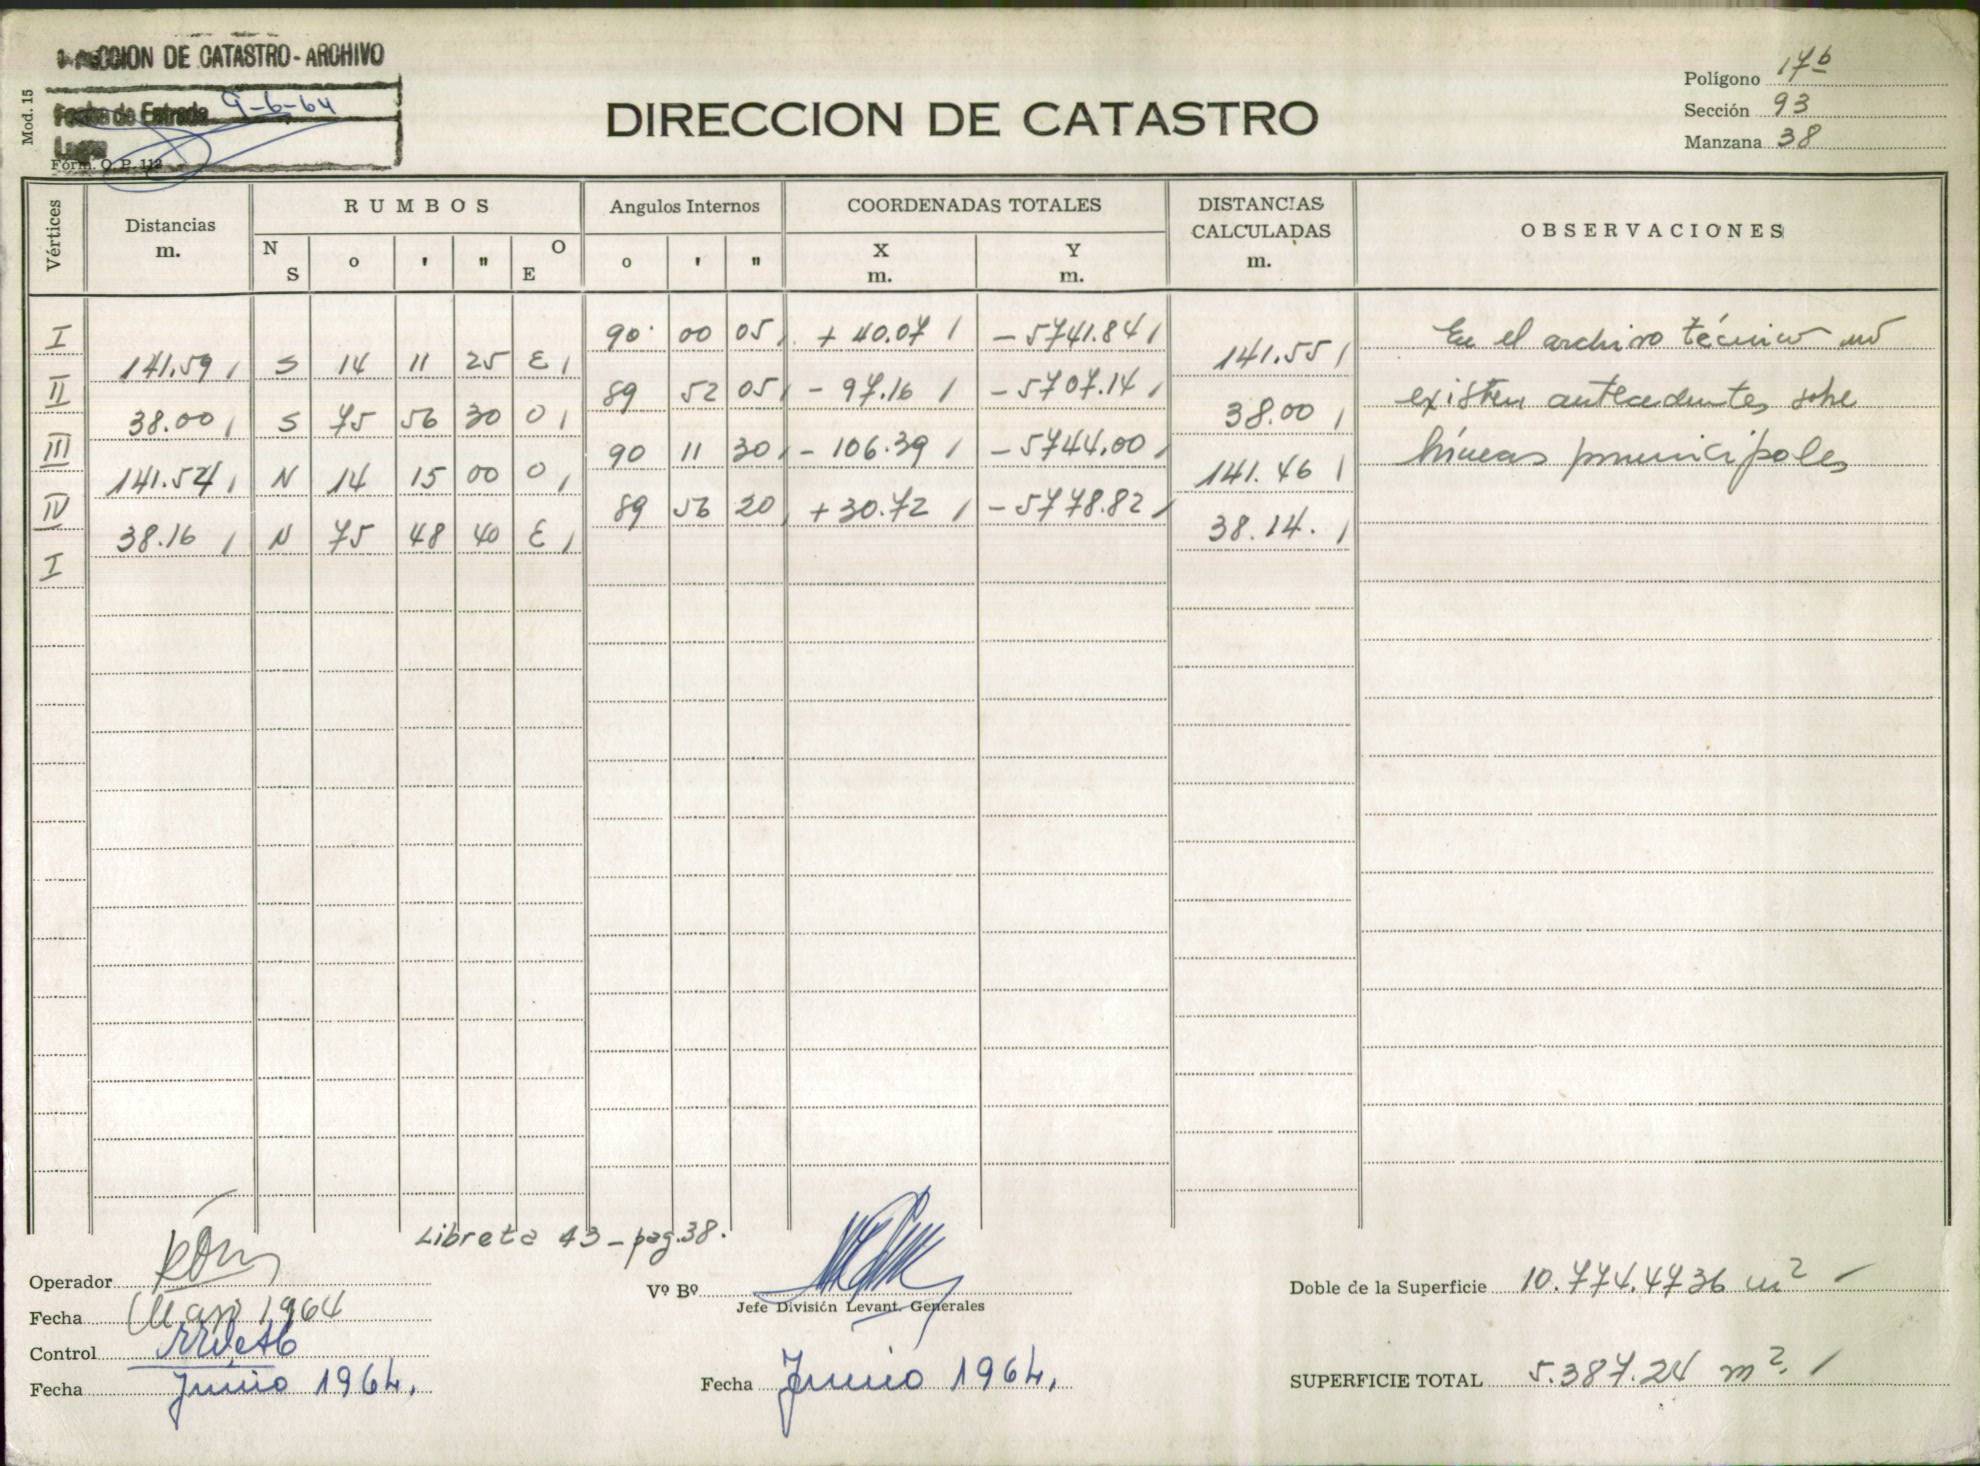 DIRECCION DE CATASTRO - ARCHIVO
Fecha de Entrada 9-6-64
Mod. 15
Form. O. P. 112
DIRECCION DE CATASTRO
Polígono 17b
Sección 93
Manzana 38
Vértices Distancias m. RUMBOS Angulos Internos COORDENADAS TOTALES DISTANCIAS CALCULADAS m. OBSERVACIONES
N S o ' " O E o ' " X m. Y m.
I 90 00 05 + 40.07 - 5741.84
141.59 S 14 11 25 E 141.55
II 89 52 05 - 97.16 - 5707.14
38.00 S 75 56 30 O 38.00
III 90 11 30 - 106.39 - 5744.00
141.54 N 14 15 00 O 141.46
IV 89 56 20 + 30.72 - 5778.82
38.16 N 75 48 40 E 38.14.
I
En el archivo técnico no
existen antecedentes sobre
líneas municipales
Libreta 43 - pag. 38.
Operador
Fecha Mayo 1964
Control
Fecha Junio 1964.
Vº Bº
Jefe División Levant. Generales
Fecha Junio 1964.
Doble de la Superficie 10.774.4736 m2
SUPERFICIE TOTAL 5.387.24 m2.